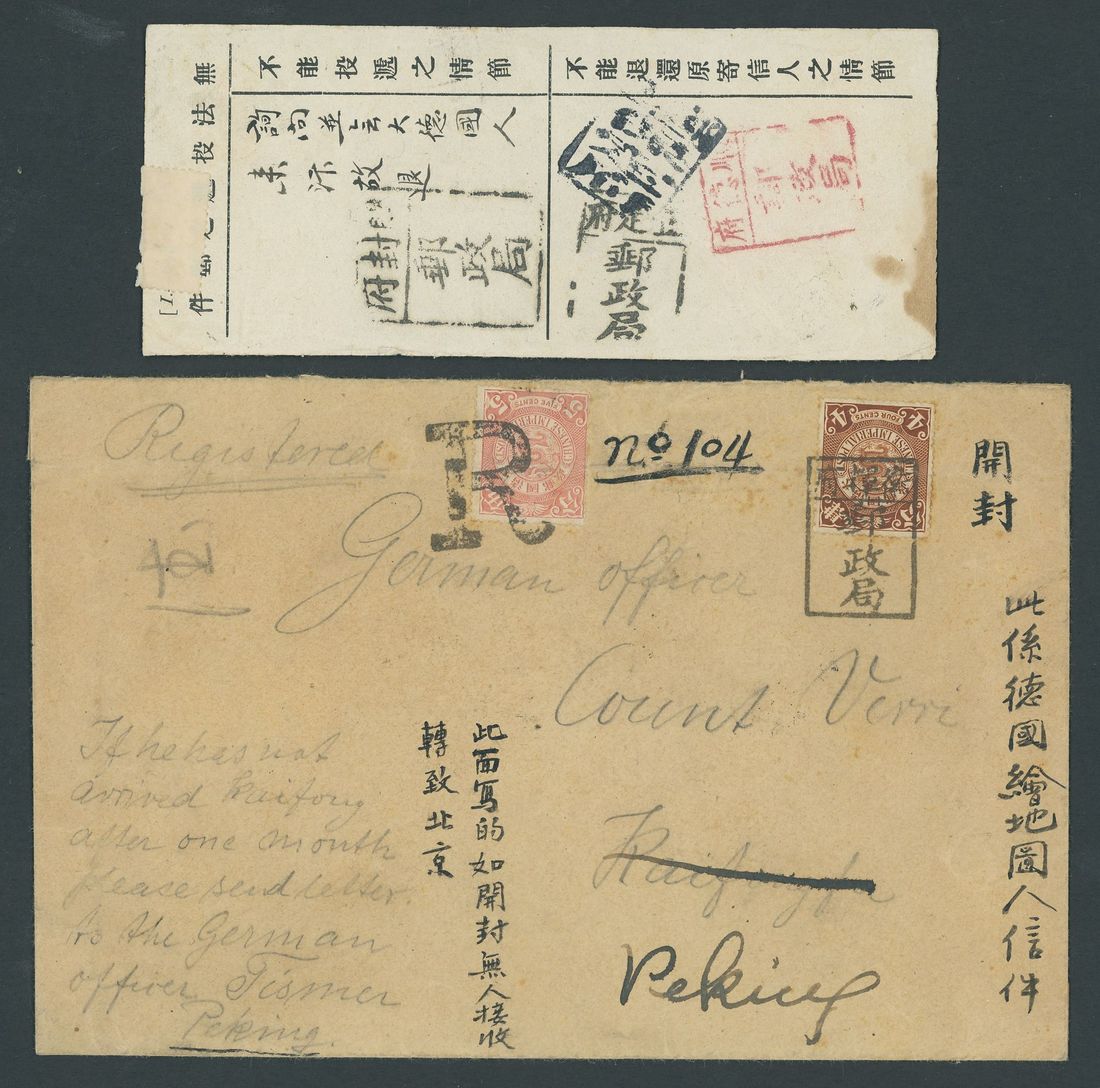 不能投遞之情節
不能退還原寄信人之情節
無法投
件
詢問並云大德國人
未汴故退
府封
郵政局
郵政局
府
郵政局
Registered
R
5
FIVE CENTS
CHINESE IMPERIAL POST
No 104
4
FOUR CENTS
CHINESE IMPERIAL POST
郵政局
開封
此係德國繪地圖人信件
German officer
Count Verri
Kaifengfu
Peking
此面寫的如開封無人接收
轉致北京
If he has not
arrived Kaifong
after one month
please send letter
to the German
officer Tismer
Peking.